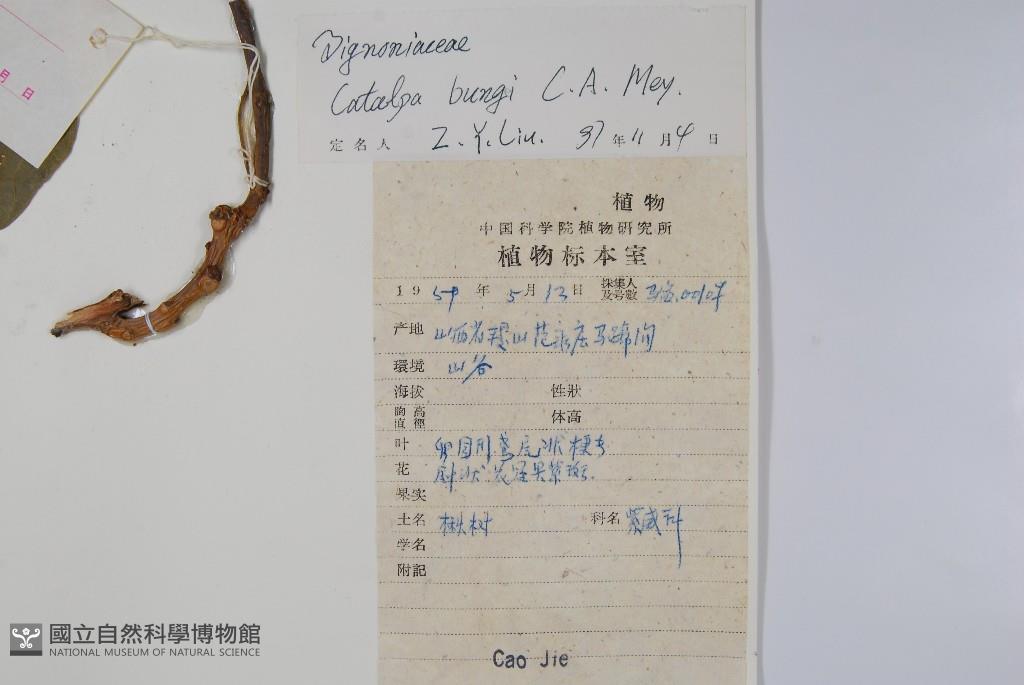 月 日
Bignoniaceae
Catalpa bungi C. A. Mey.
定名人 Z. Y. Liu. 37年11月4日
植物
中国科学院植物研究所
植物标本室
1959年5月13日 採集人及号数
产地 山西省
環境 山谷
海拔 性狀
胸高直徑 体高
叶
花
果实
土名 楸树 科名 紫威科
学名
附記
Cao Jie
國立自然科學博物館
NATIONAL MUSEUM OF NATURAL SCIENCE